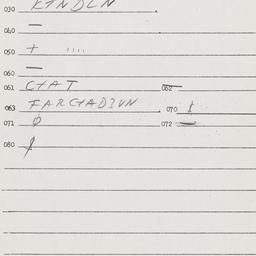 030 KYNDLN
040 —
050 + ''''
060 —
061 CYAT 062 —
063 FARCYADJVN 070 $
071 Ø 072 —
080 $